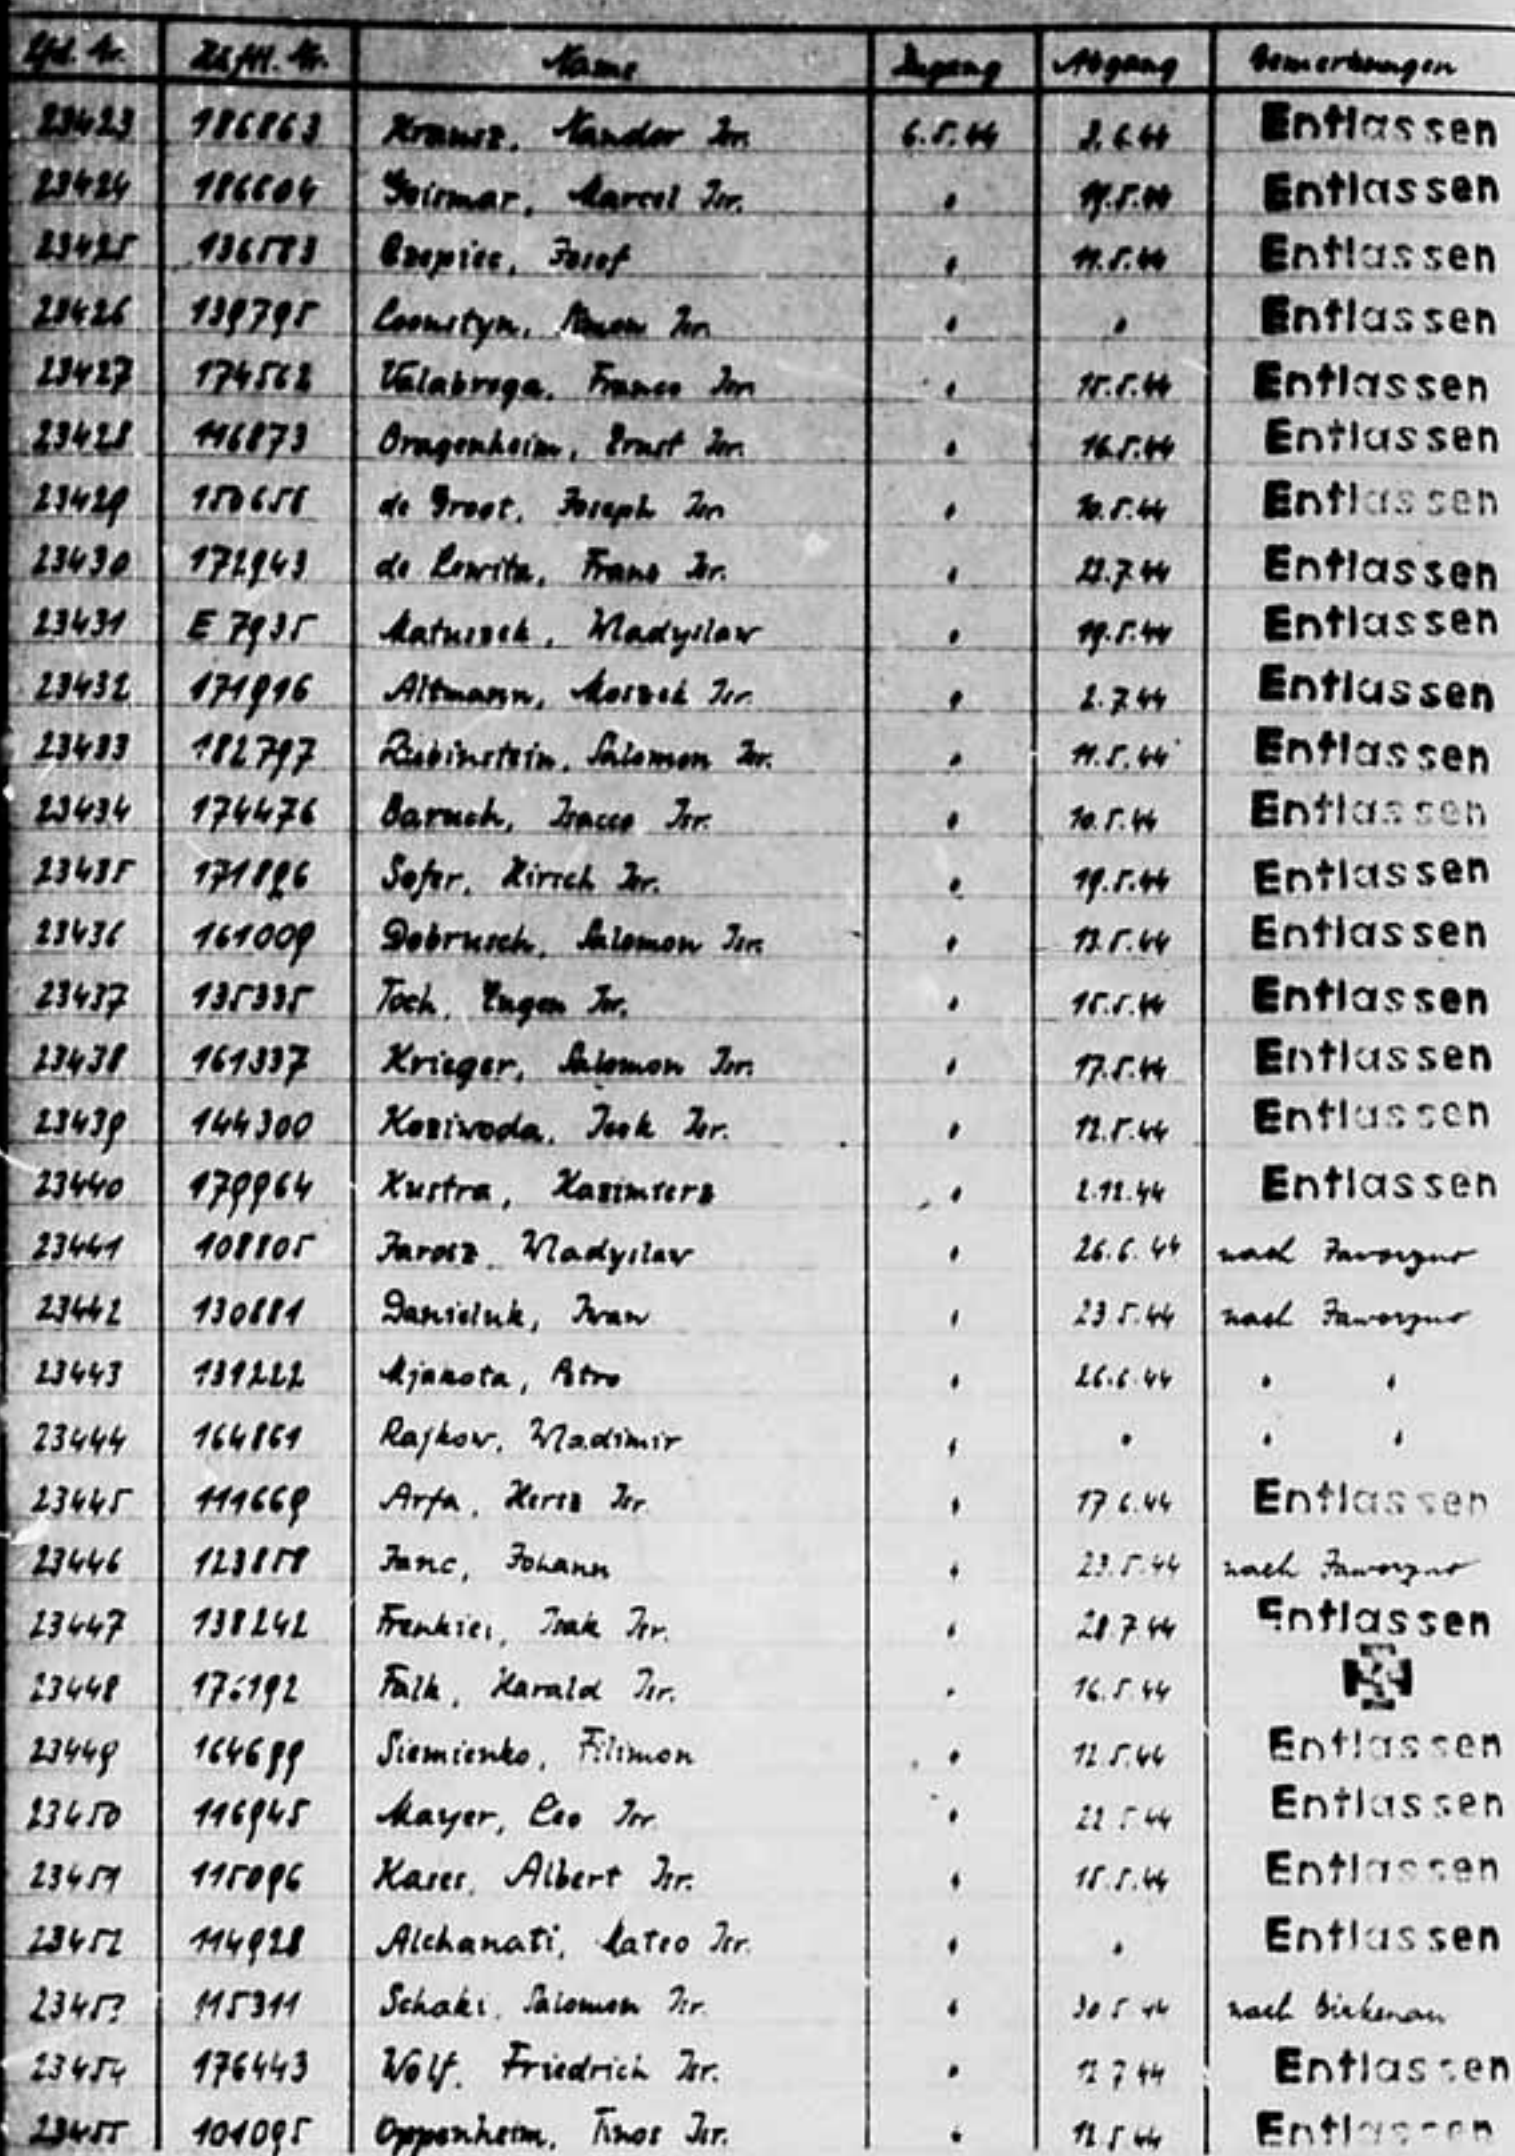 Lfd. Nr. Häftl. Nr. Name Zugang Abgang Bemerkungen
23423 186863 Krausz, Nandor Isr. 6.5.44 2.6.44 Entlassen
23424 186604 Marcel Isr. " 19.5.44 Entlassen
23425 136583 Czepiec, Josef " 11.5.44 Entlassen
23426 139795 Isr. " " Entlassen
23427 174562 Valabrega, Franco Isr. " 15.5.44 Entlassen
23428 116873 Dragenheim, Ernst Isr. " 16.5.44 Entlassen
23429 150655 de Groot, Joseph Isr. " 10.5.44 Entlassen
23430 172943 de Frans Isr. " Entlassen
23431 E 7935 Matuszek, Wladyslaw " 19.5.44 Entlassen
23432 171916 Altmann, Moszek Isr. " 2.7.44 Entlassen
23433 182797 Rubinstein, Salomon Isr. " 11.5.44 Entlassen
23434 174476 Baruch, Isacco Isr. " 10.5.44 Entlassen
23435 171896 Sofer, Hirsch Isr. " 19.5.44 Entlassen
23436 161009 Dobrusch, Salomon Isr. " Entlassen
23437 135335 Toch, Eugen Isr. " 15.5.44 Entlassen
23438 161337 Krieger, Salomon Isr. " 17.5.44 Entlassen
23439 144300 Koziwoda, Icek Isr. " 12.5.44 Entlassen
23440 179964 Kustra, Kazimierz " 2.12.44 Entlassen
23441 108805 Jarosz, Wladyslaw " 26.6.44 nach Jaworzno
23442 130881 Danieluk, Iwan " 23.5.44 nach Jaworzno
23443 131222 Mjakota, Petro " 26.6.44 " "
23444 164861 Rajkow, Wladimir " " " "
23445 111669 Arfa, Hersz Isr. " 17.6.44 Entlassen
23446 123858 Janc, Johann " 23.5.44 nach Jaworzno
23447 138242 Frenkiel, Isak Isr. " 28.7.44 Entlassen
23448 176192 Falk, Harald Isr. " 16.5.44
23449 164689 Siemienko, Filimon " 12.5.44 Entlassen
23450 116945 Mayer, Leo Isr. " 22.5.44 Entlassen
23451 115096 Kases, Albert Isr. " 15.5.44 Entlassen
23452 114928 Alchanati, Mateo Isr. " " Entlassen
23453 115311 Schaki, Salomon Isr. " 30.5.44 nach Birkenau
23454 176443 Wolf, Friedrich Isr. " 12.7.44 Entlassen
23455 101095 Oppenheim, Isr. " 12.5.44 Entlassen